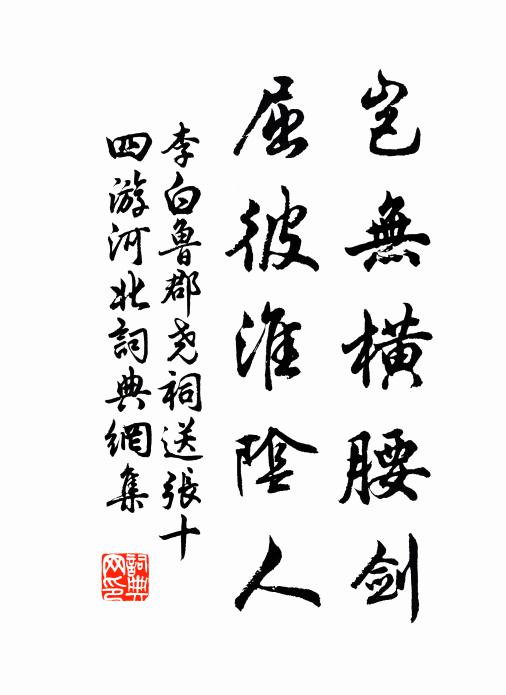 岂無橫腰劍
屈彼淮陰人
李白魯郡尧祠送張十
四游河北詞典網集
詞典
网印